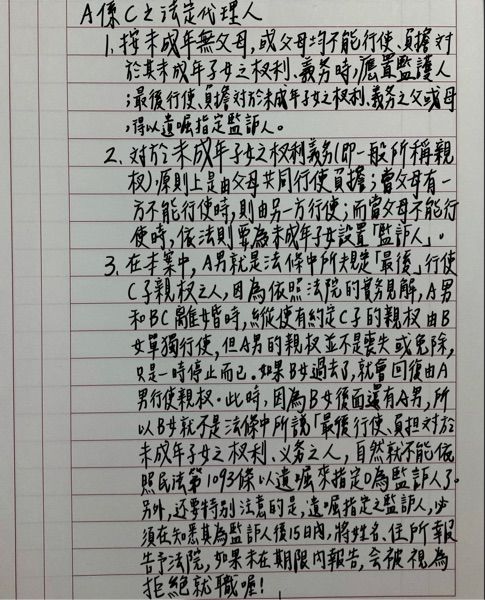 A係C之法定代理人
1. 按未成年無父母，或父母均不能行使、負擔對
於其未成年子女之权利、義務時，應置監護人
；最後行使、負擔對於未成年子女之权利、義務之父或母
，得以遺囑指定監訢人。
2. 对於未成年子女之权利義務(即一般所稱親
权)，原則上是由父母共同行使負擔；當父母有一
方不能行使時，則由另一方行使；而當父母不能行
使時，依法則要為未成年子女設置「監訢人」。
3. 在本案中，A男就是法條中所規定「最後」行使
C子親权之人，因為依照法院的實務見解，A男
和BC離婚時，縱使有約定C子的親权由B
女單獨行使，但A男的親权並不是喪失或免除，
只是一時停止而已。如果B女過去了，就會回復由A
男行使親权。此時，因為B女後面還有A男，所
以B女就不是法條中所說「最後行使、負担对於
未成年子女之权利、义务之人，自然就不能依
照民法第1093條以遺囑來指定D為監訢人了。
另外，还要特别注意的是，遺囑指定之監訢人，必
須在知悉其為監訢人後15日內，將姓名、住所報
告予法院，如果未在期限內報告，会被視為
拒絕就職喔！